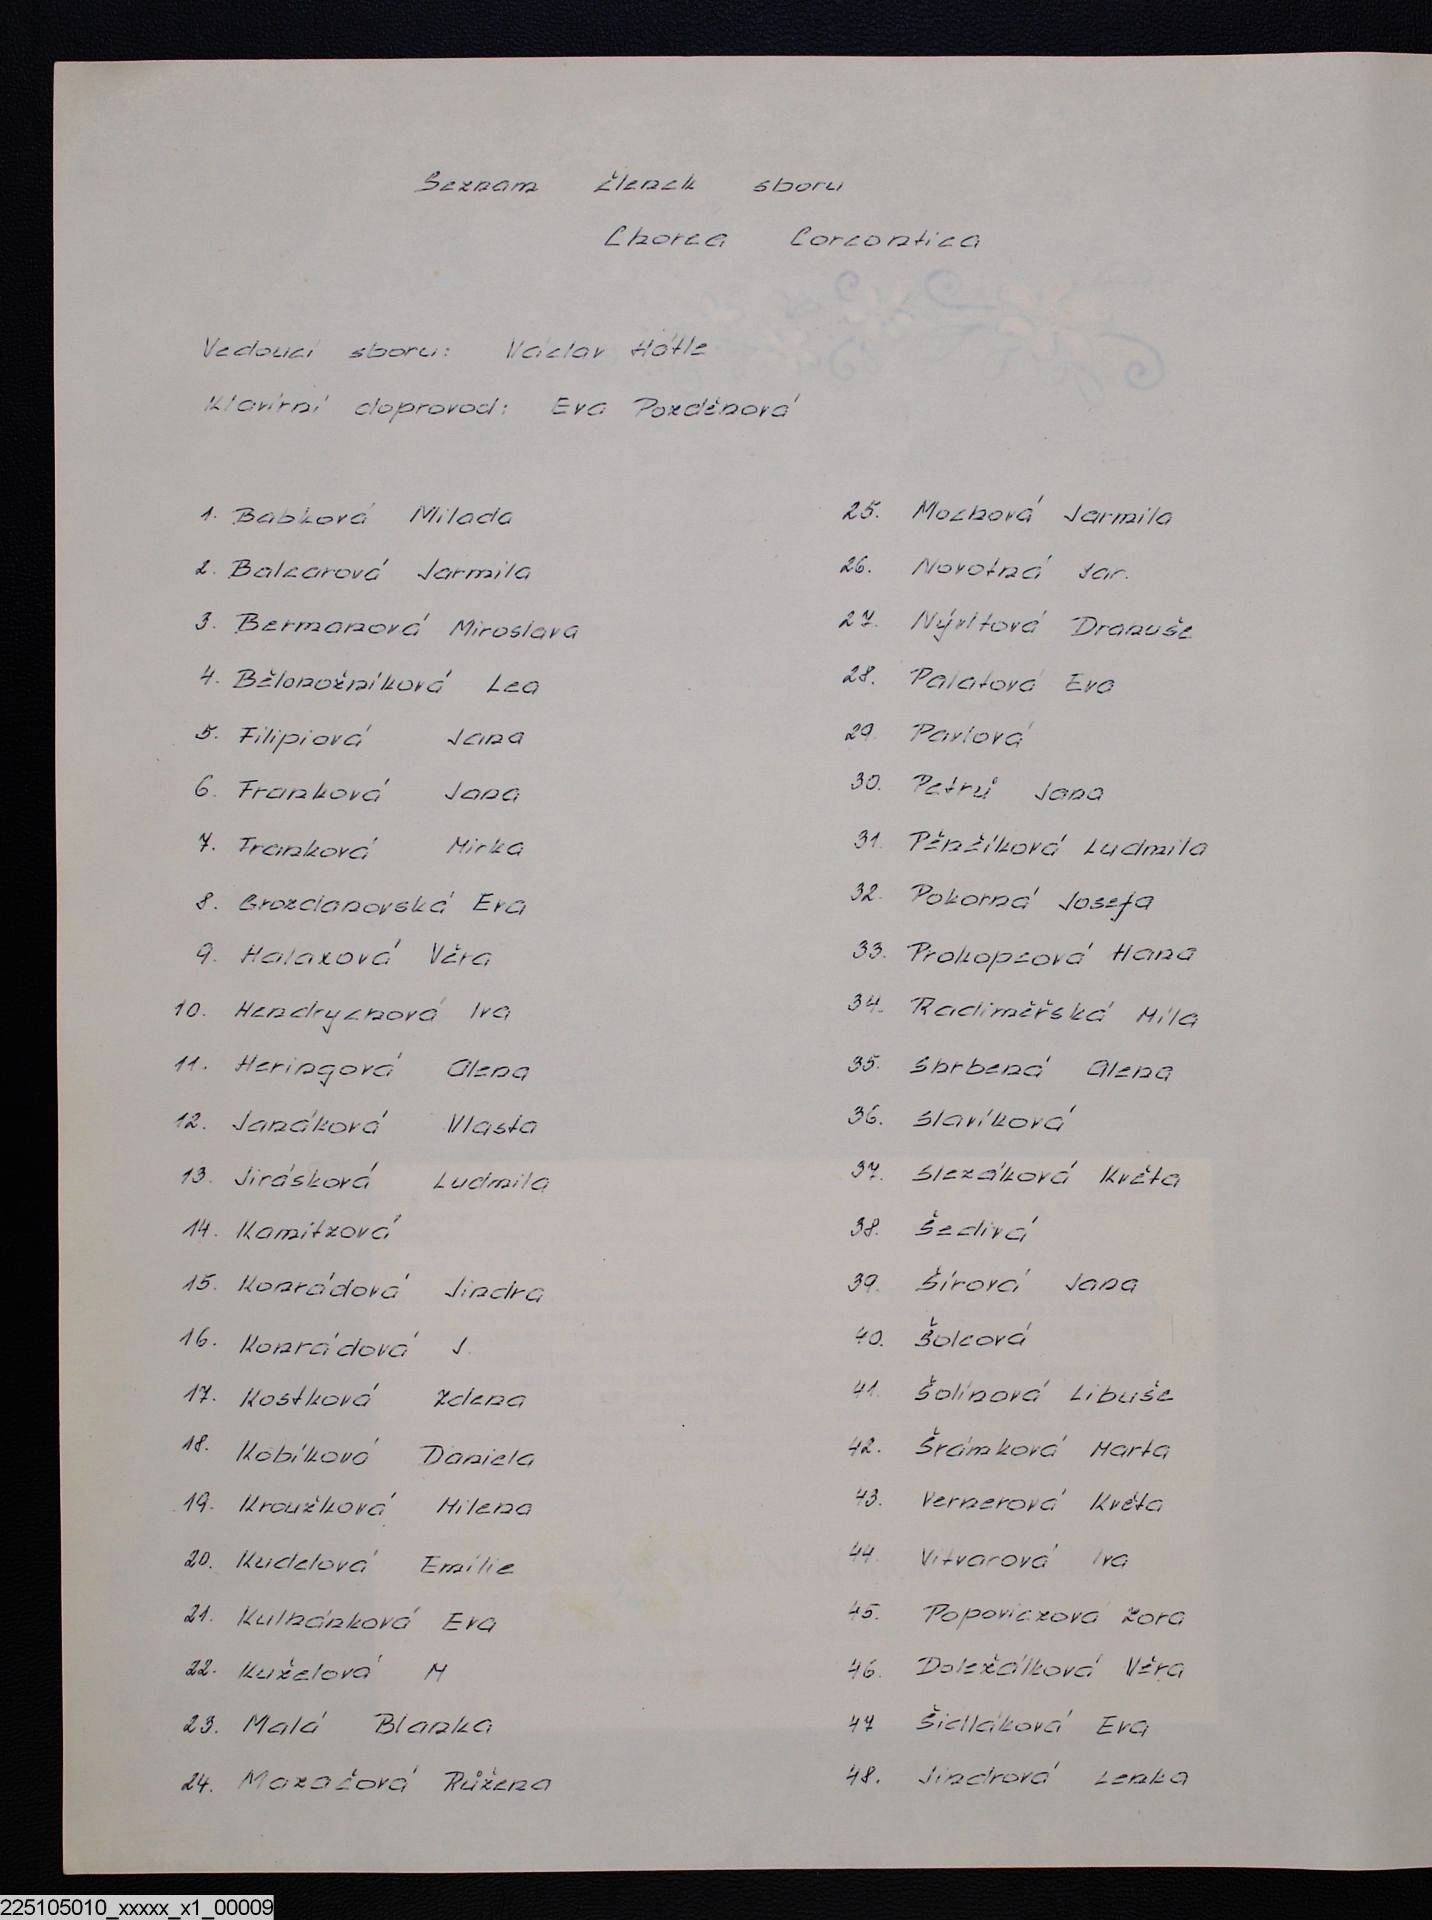 Seznam členek sboru
Chorea Corcontica
Vedoucí sboru: Václav Hátle
Klavírní doprovod: Eva Pozděnová
1. Babková Milada
2. Balcarová Jarmila
3. Bermanová Miroslava
4. Bělonožníková Lea
5. Filipiová Jana
6. Franková Jana
7. Franková Mirka
8. Grozdanovská Eva
9. Halaxová Věra
10. Hendrychová Iva
11. Heringová Alena
12. Janáková Vlasta
13. Jirásková Ludmila
14. Kamitzová
15. Konrádová Jindra
16. Konrádová J.
17. Kostková Zdena
18. Kobíková Daniela
19. Kroužková Milena
20. Kudelová Emílie
21. Kulhánková Eva
22. Kuželová M
23. Malá Blanka
24. Mazačová Růžena
25. Mochová Jarmila
26. Novotná Jar.
27. Nývltová Drahuše
28. Palatová Eva
29. Pavlová
30. Petrů Jana
31. Pěnčíková Ludmila
32. Pokorná Josefa
33. Prokopcová Hana
34. Radiměřská Míla
35. Shrbená Alena
36. Slavíková
37. Slezáková Květa
38. Šedivá
39. Šírová Jana
40. Šolcová
41. Šolínová Libuše
42. Šrámková Marta
43. Vernerová Květa
44. Vitvarová Iva
45. Popoviczová Zora
46. Doležálková Věra
47 Šidláková Eva
48. Jindrová Lenka
225105010_xxxxx_x1_00009